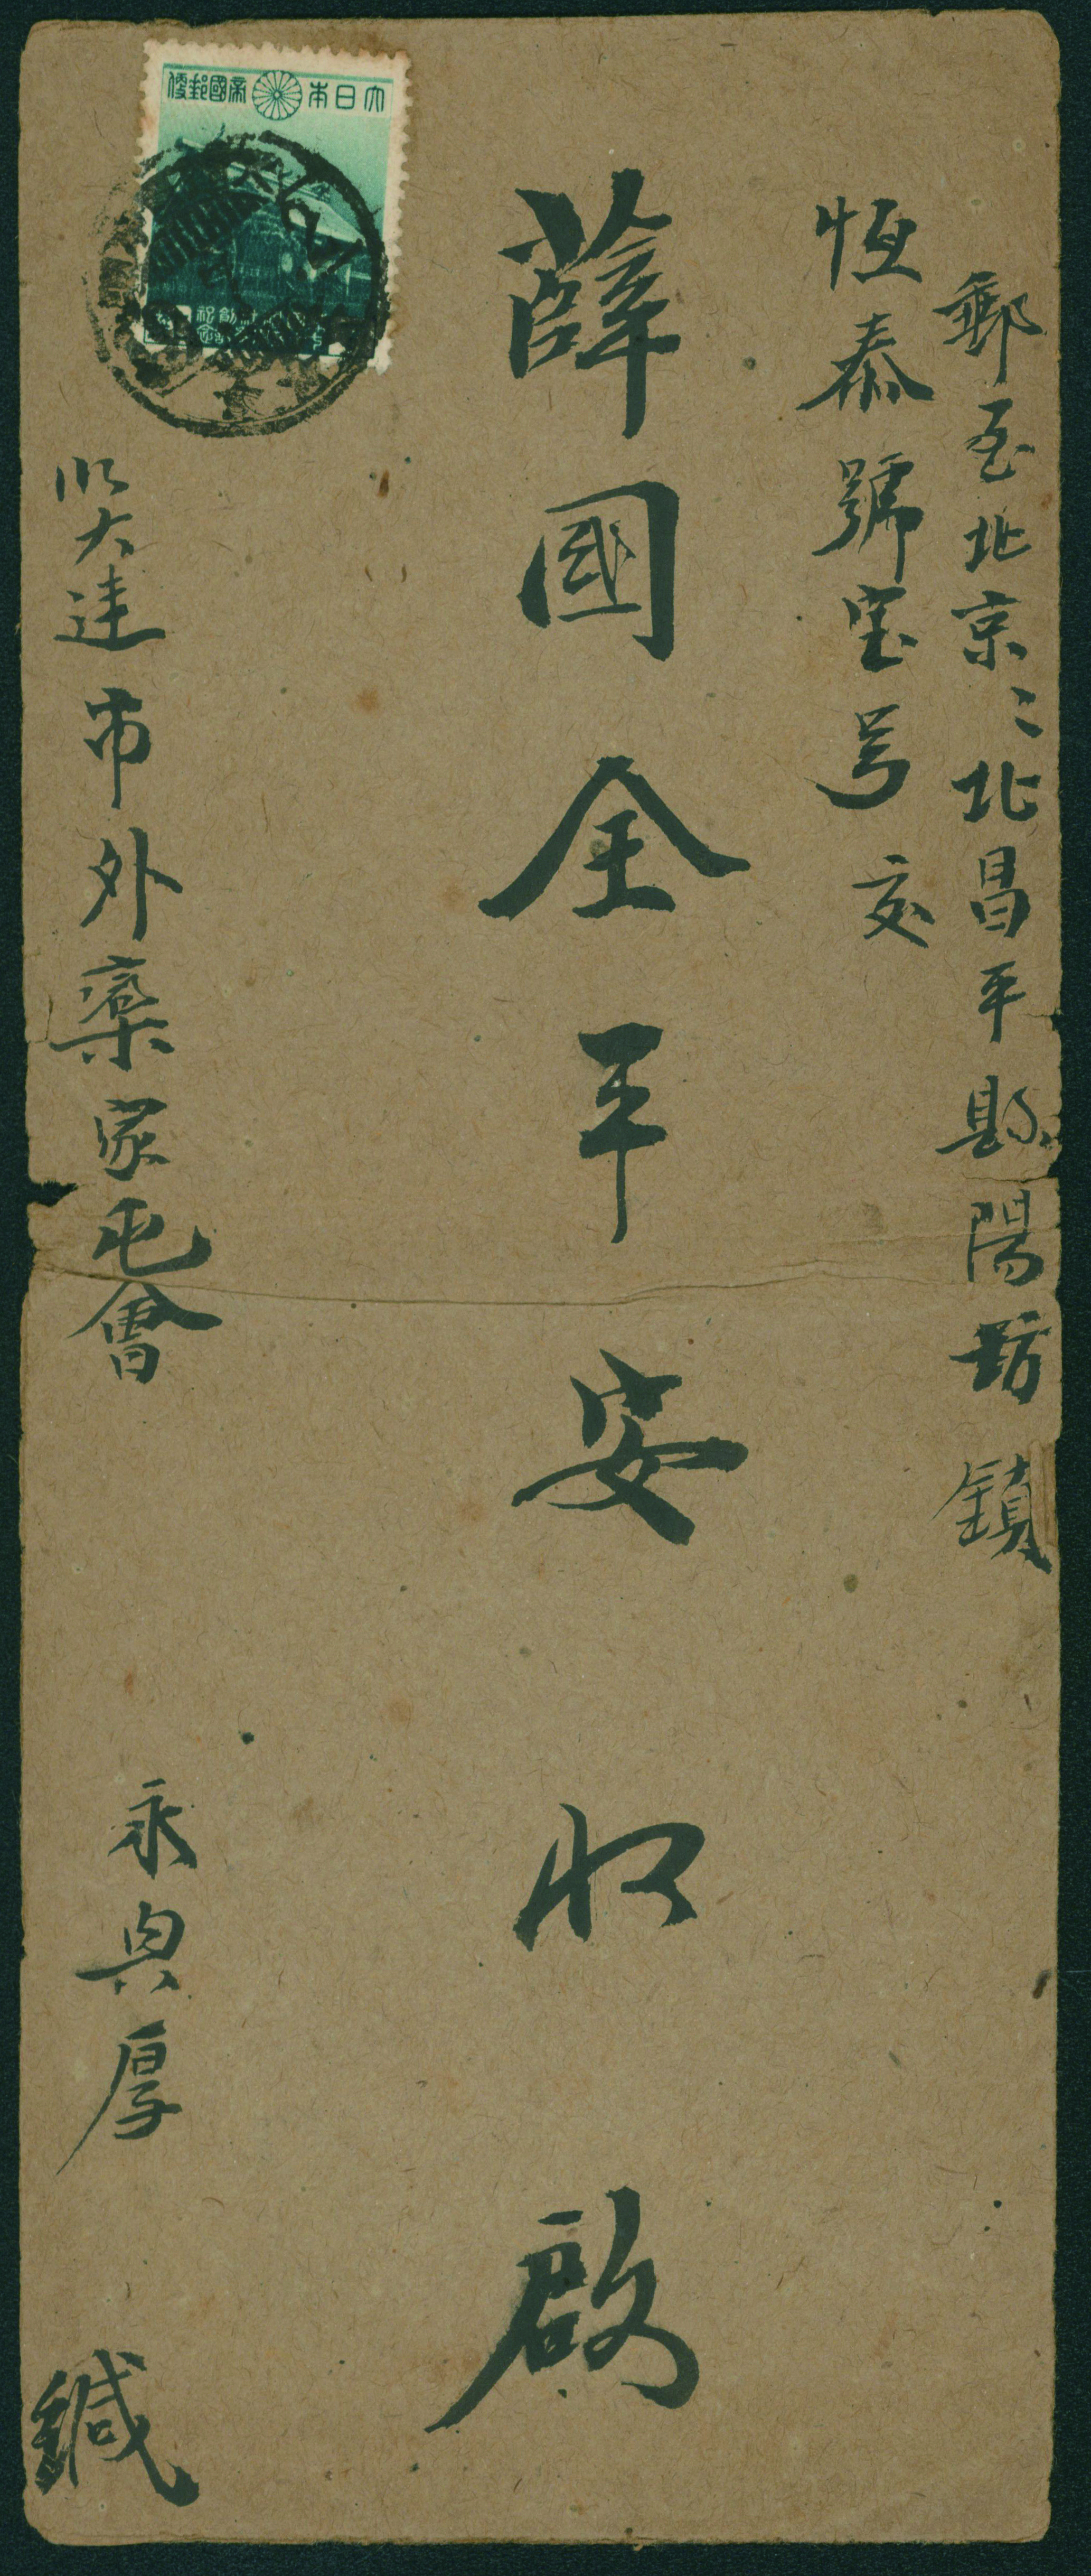 郵至北京々北昌平縣陽坊鎮
恆泰號宝号 交
薛國全平安收啟
大連市外欒家屯會
永興厚 緘
大日本帝國郵便